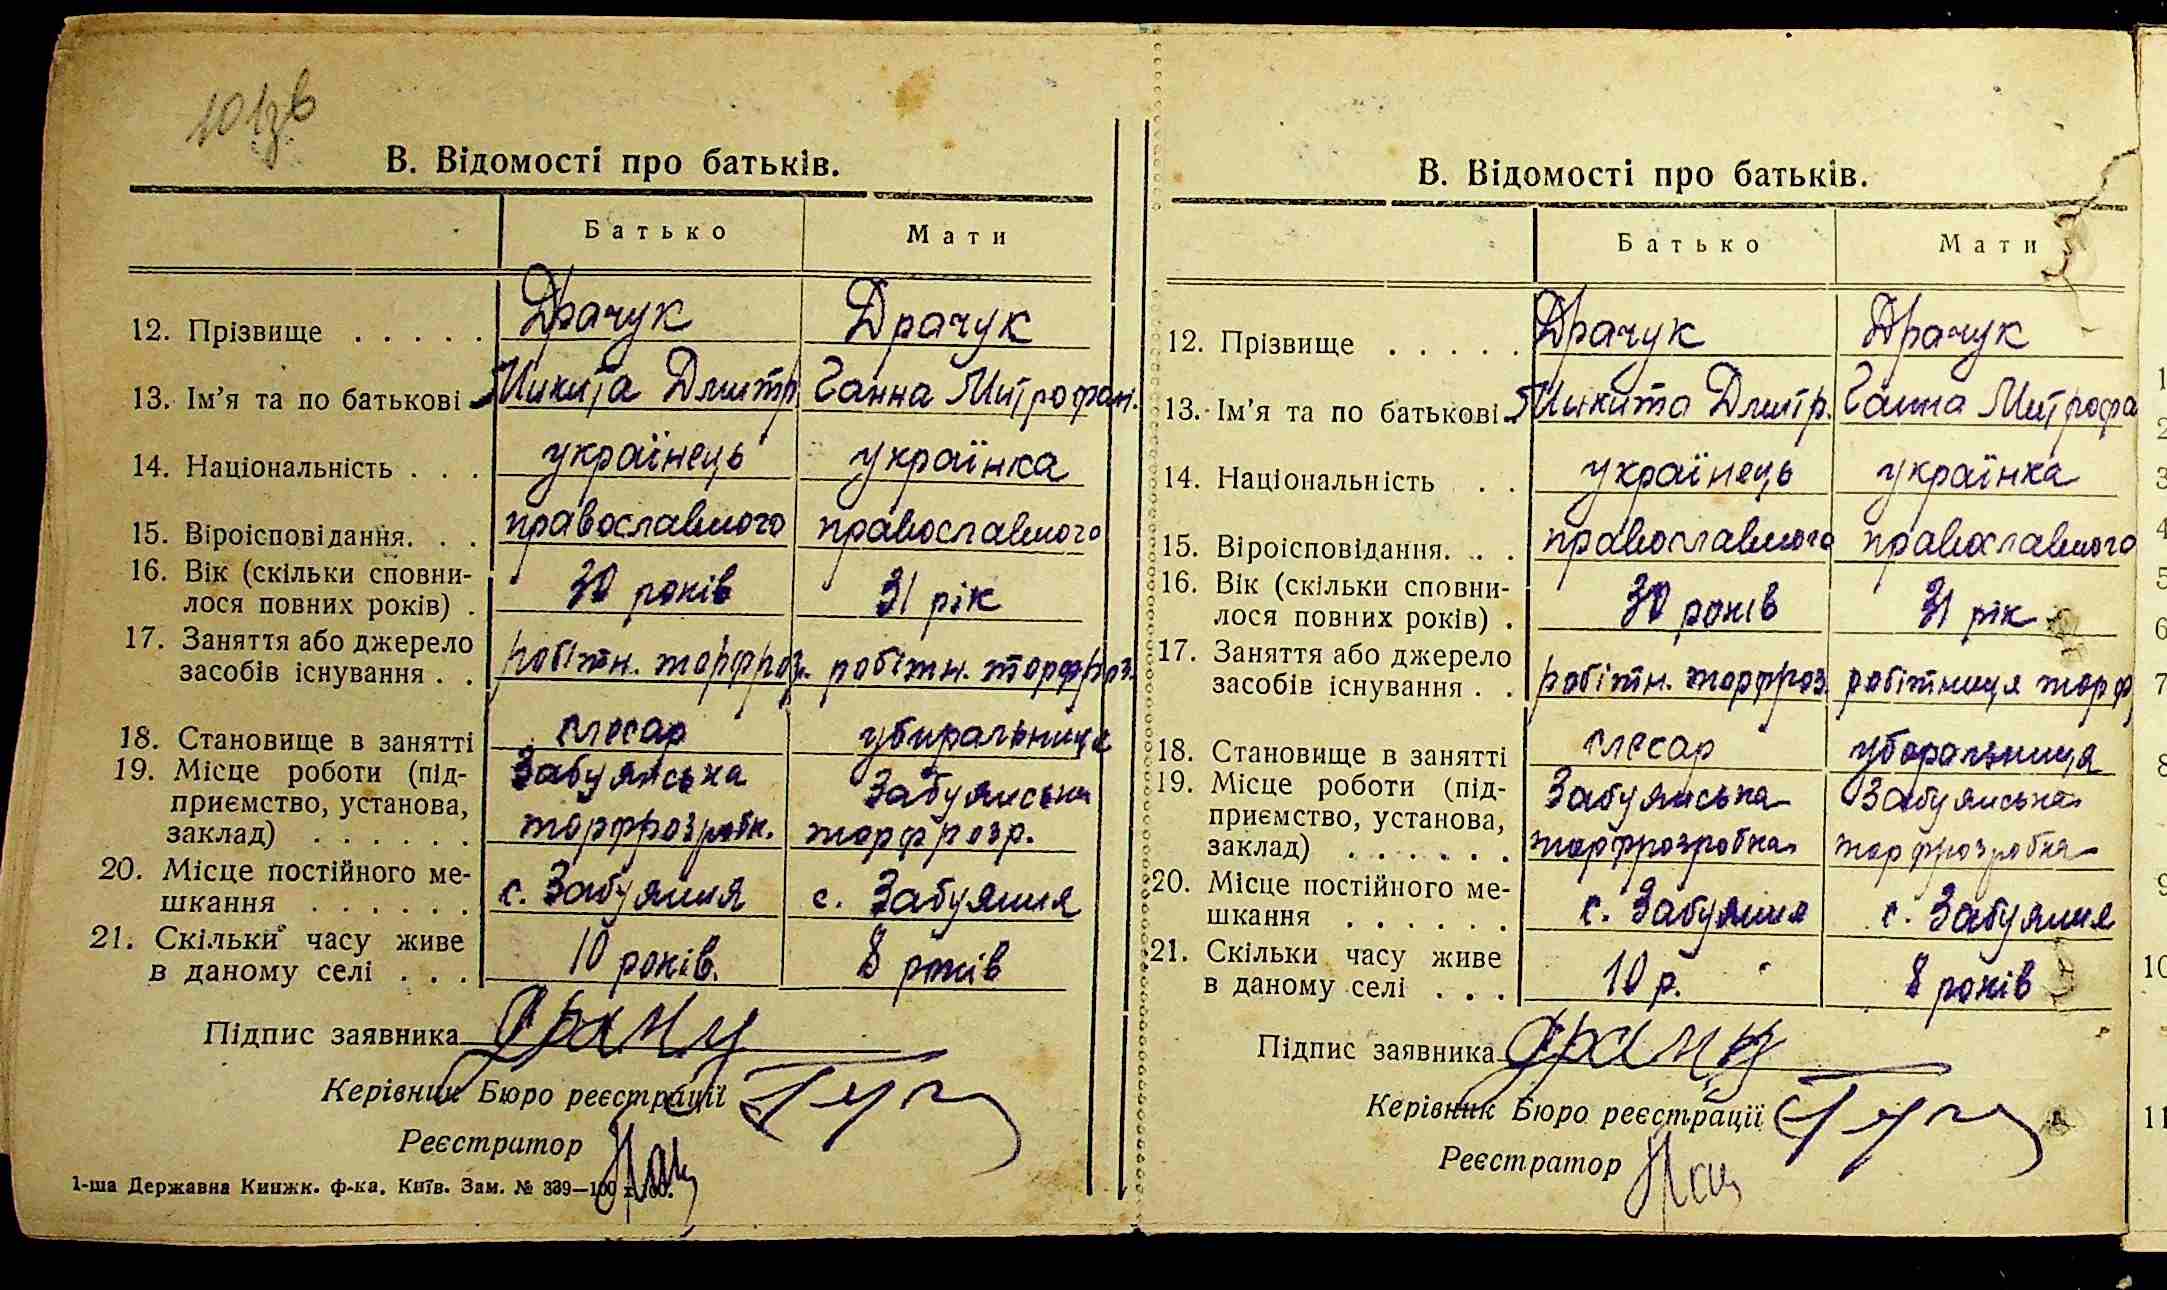 101зв
В. Відомості про батьків.
Батько Мати
12. Прізвище . . . . . Драчук Драчук
13. Ім’я та по батькові Микита Дмитр. Ганна Митрофан.
14. Національність . . . українець українка
15. Віроісповідання. . . православного православного
16. Вік (скільки сповни-
лося повних років) . 30 років 31 рік
17. Заняття або джерело
засобів існування . . робітн. торфроз. робітн. торфроз.
18. Становище в занятті слесар убиральниця
19. Місце роботи (під- Забуянська Забуянська
приємство, установа,
заклад) . . . . . . торфрозробн. торфрозр.
20. Місце постійного ме-
шкання . . . . . . с. Забуяння с. Забуяння
21. Скільки часу живе
в даному селі . . . 10 років. 8 років
Підпис заявника
Керівник Бюро реєстрації
Реєстратор
1-ша Державна Книжк. ф-ка. Київ. Зам. № 339—100
В. Відомості про батьків.
Батько Мати
12. Прізвище . . . . . Драчук Драчук
13. Ім’я та по батькові Микита Дмитр. Ганна Митрофа
14. Національність . . українець українка
15. Віроісповідання. . . православного православного
16. Вік (скільки сповни-
лося повних років) . 30 років 31 рік
17. Заняття або джерело
засобів існування . . робітн. торфроз. робітниця торф
18. Становище в занятті слесар уборальниця
19. Місце роботи (під- Забуянська Забуянська
приємство, установа,
заклад) . . . . . . торфрозробна торфрозробна
20. Місце постійного ме-
шкання . . . . . . с. Забуяння с. Забуяння
21. Скільки часу живе
в даному селі . . . 10 р. 8 років
Підпис заявника
Керівник Бюро реєстрації
Реєстратор